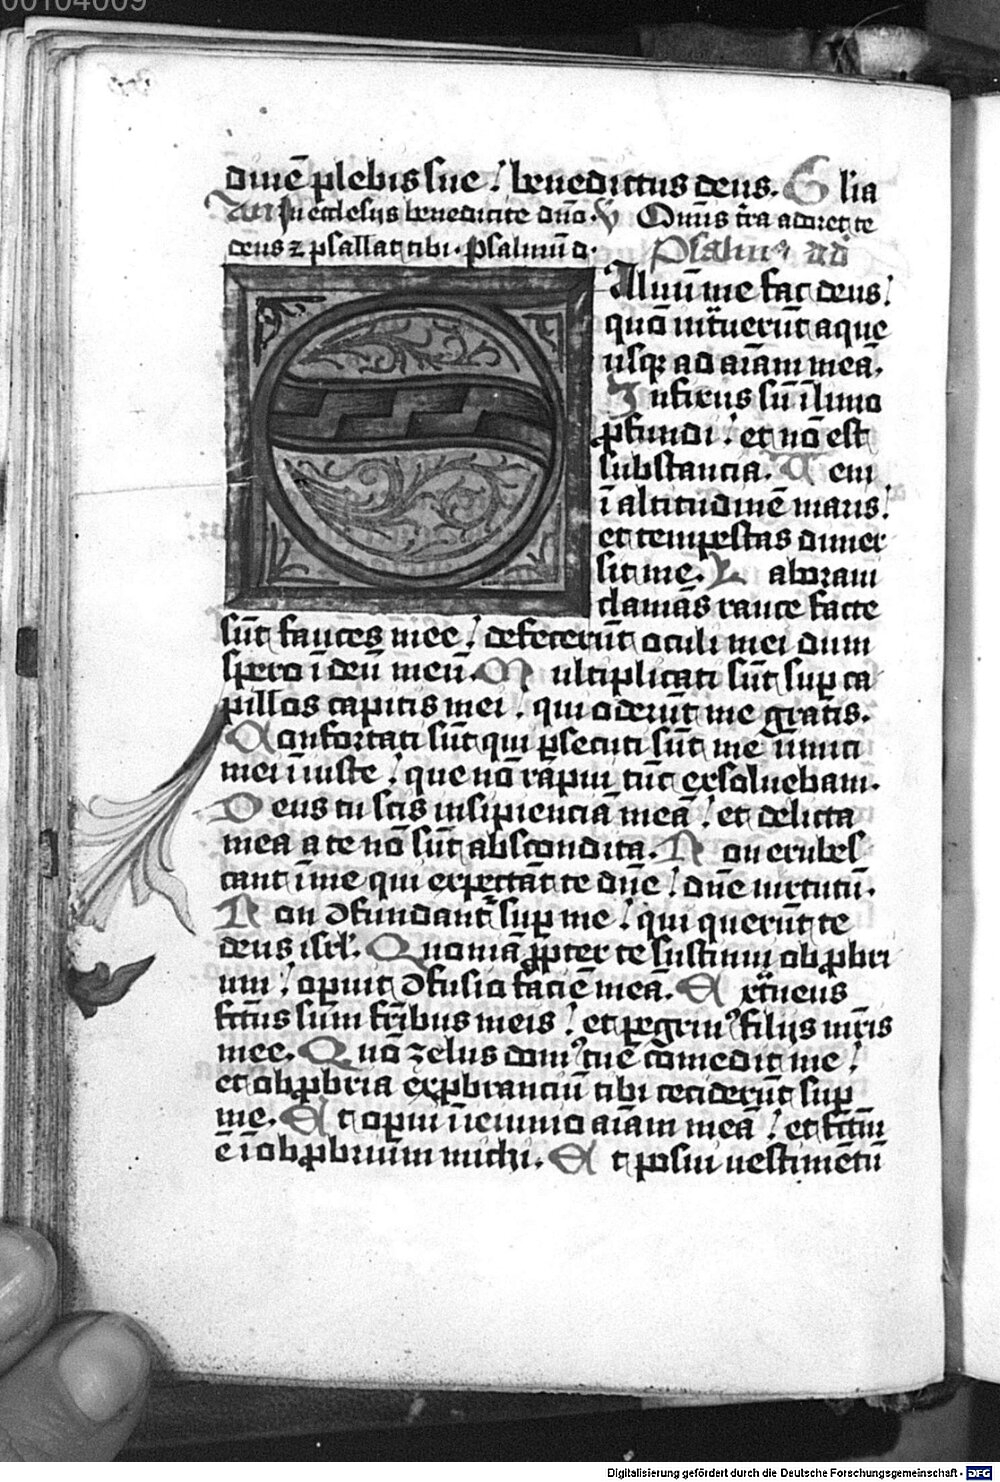 00104009
dinē plebis sue / benedictus deus. Glia
An In ecclesijs benedicite dño. v Omīs t̄ra adoret te
deus ⁊ psallat tibi. psalmū d. Psalmꝰ dd
Aluū me fac deus /
quō int̄uerūt aque
usqꝫ ad aīam meā.
Infixus sū ī limo
ꝓfundi / et nō est
substancia. Ueni
ī altitudinē maris /
et tempestas dimer
sit me. Laboraui
clamās rauce facte
sūt fauces mee / defecerūt oculi mei dum
spero ī deū meū. Multiplicati sūt suꝑ ca
pillos capitis mei / qui oderūt me gratis.
Confortati sūt qui ꝑsecuti sūt me inimici
mei īiuste / que nō rapui tūc exsoluebam.
Deus tu scis insipienciā meā / et delicta
mea a te nō sūt abscondita. Non erubes
cant ī me qui expectāt te dñe / dñe uirtutū.
Non ꝯfundant᷑ suꝑ me / qui querūt te
deus isrl̄. Quoniā ꝓpter te sustinui obꝓbri
um / operuit ꝯfusio faciē meā. Ext̄neus
fctūs sum fr̄ibus meis / et ꝑegrinꝰ filijs mr̄is
mee. Quō zelus domꝰ tue comedit me /
et obꝓbria exꝓbranciū tibi ceciderūt suꝑ
me. Et operui ī ieiunio aīam meā / et fctm̄
ē ī obꝓbrium michi. Et posui uestimētū
Digitalisierung gefördert durch die Deutsche Forschungsgemeinschaft - DFG